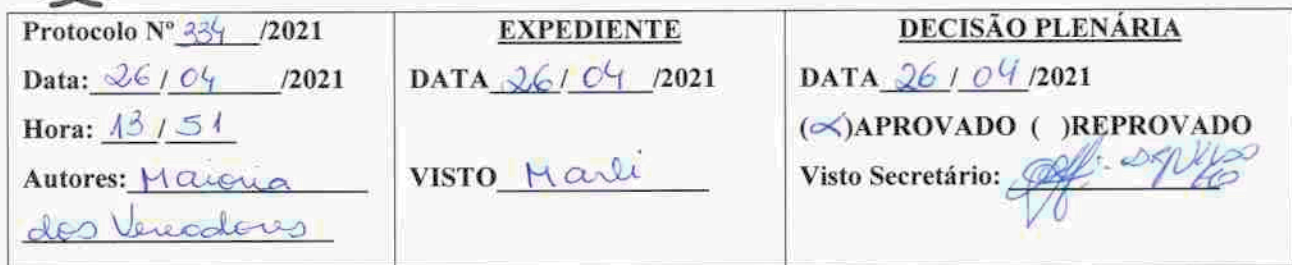 Protocolo Nº 334 /2021
Data: 26 / 04 /2021
Hora: 13 / 51
Autores: Maioria
dos Vereadores
EXPEDIENTE
DATA 26 / 04 /2021
VISTO Marli
DECISÃO PLENÁRIA
DATA 26 / 04 /2021
(x)APROVADO ( )REPROVADO
Visto Secretário: